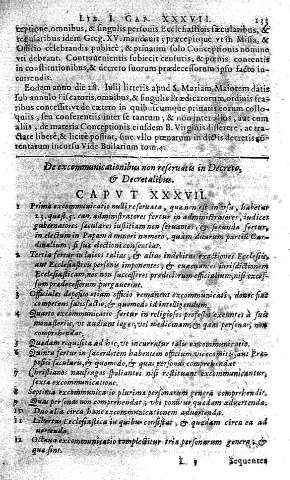 LIB. I. CAP. XXXVII. 233
ceptione, omnibus, & singulis personis Ecclesiasticis sæcularibus, &
regularibus idem Greg. XV. mandauit, præcepitque vt in Missa, &
Officio celebrandis publicè, & priuatim solo Conceptionis nomine
vti debeant. Contrauenientes subiecit censuris, & pœnis contentis
in constitutionibus, & decreto suorum prædecessorum ipso facto in-
currendis.
Eodem anno die 28. Iulij litteris apud S. Mariam Maiorem datis
sub annulo Piscatoris, omnibus, & singulis Prædicatorum ordinis fra-
tribus concessit vt de cætero in quibuscunque priuatis eorum collo-
quijs, seu conferentiis inter se tantum, & non inter alios, aut cum
aliis, de materia Conceptionis eiusdem B. Virginis disserere, ac tra-
ctare liberè, & licitè possint, sine vllo pœnarum in dictis decretis con-
tentarum incursu Vide Bullarium tom. 4.
De excommunicationibus non reseruatis in Decreto,
& Decretalibus.
CAPVT XXXVII.
1 Prima excommunicatio nulli reseruata, quæ non est in vsu, habetur
23. quæst. 5. can. administratores fertur in administratores, iudices
gubernatores sæculares iustitiam non seruantes, & secunda fertur,
in electum in Papam à minori numero, quàm duarum partium Cardi-
dinalium, si suæ electioni consentiat.
2 Tertia fertur in laicos talias, & alias indebitas exactiones Ecclesiis,
aut Ecclesiasticis personis imponentes, & euacuantes iurisdictionem
Ecclesiasticam, nec non successores prædictorum officialium, nisi exces-
sum prædecessorum purgauerint.
3 Officiales depositi etiam officio remanent excommunicati, donec satis
competens satisfactio, & quomodo id intelligendum.
4 Quarta excommunicatio fertur in religiosos professos exeuntes à suis
monasteriis, vt audient leges, vel medicinam, & quas personas non
comprehendat.
5 Quædam requisita ad hoc, vt incurratur talis excommunicatio.
6 Quinta fertur in sacerdotem habentem officium vicecomitis, aut Præ-
positi sæcularis, & quomodo, & quas personas comprehendat
7 Christianos naufragos spoliantes nisi restituant excommunicantur,
sexta excommunicatione.
8 Septima excommunicatio plurima personarum genera comprehendit.
9 Quas personas non comprehendat, vbi ponitur quædam aduertenda.
10 Duo alia circa hanc excommunicationem aduertenda.
11 Libertas Ecclesiastica in quibus consistat, & quædam circa ea ad-
uertenda.
12 Octaua excommunicatio complectitur tria personarum genera, &
quæ sint.
Sequentes